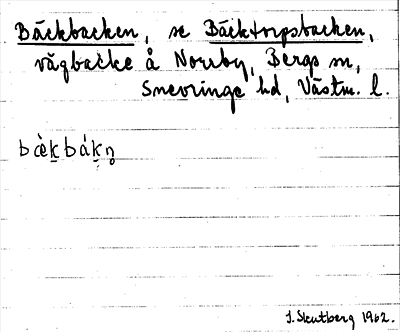 Bäckbacken, se Bäcktorpsbacken,
vägbacke å Norrby, Bergs sn,
Snevringe hd, Västm. l.
bæ̀k̠bák̠n̥
J. Skutberg 1962.